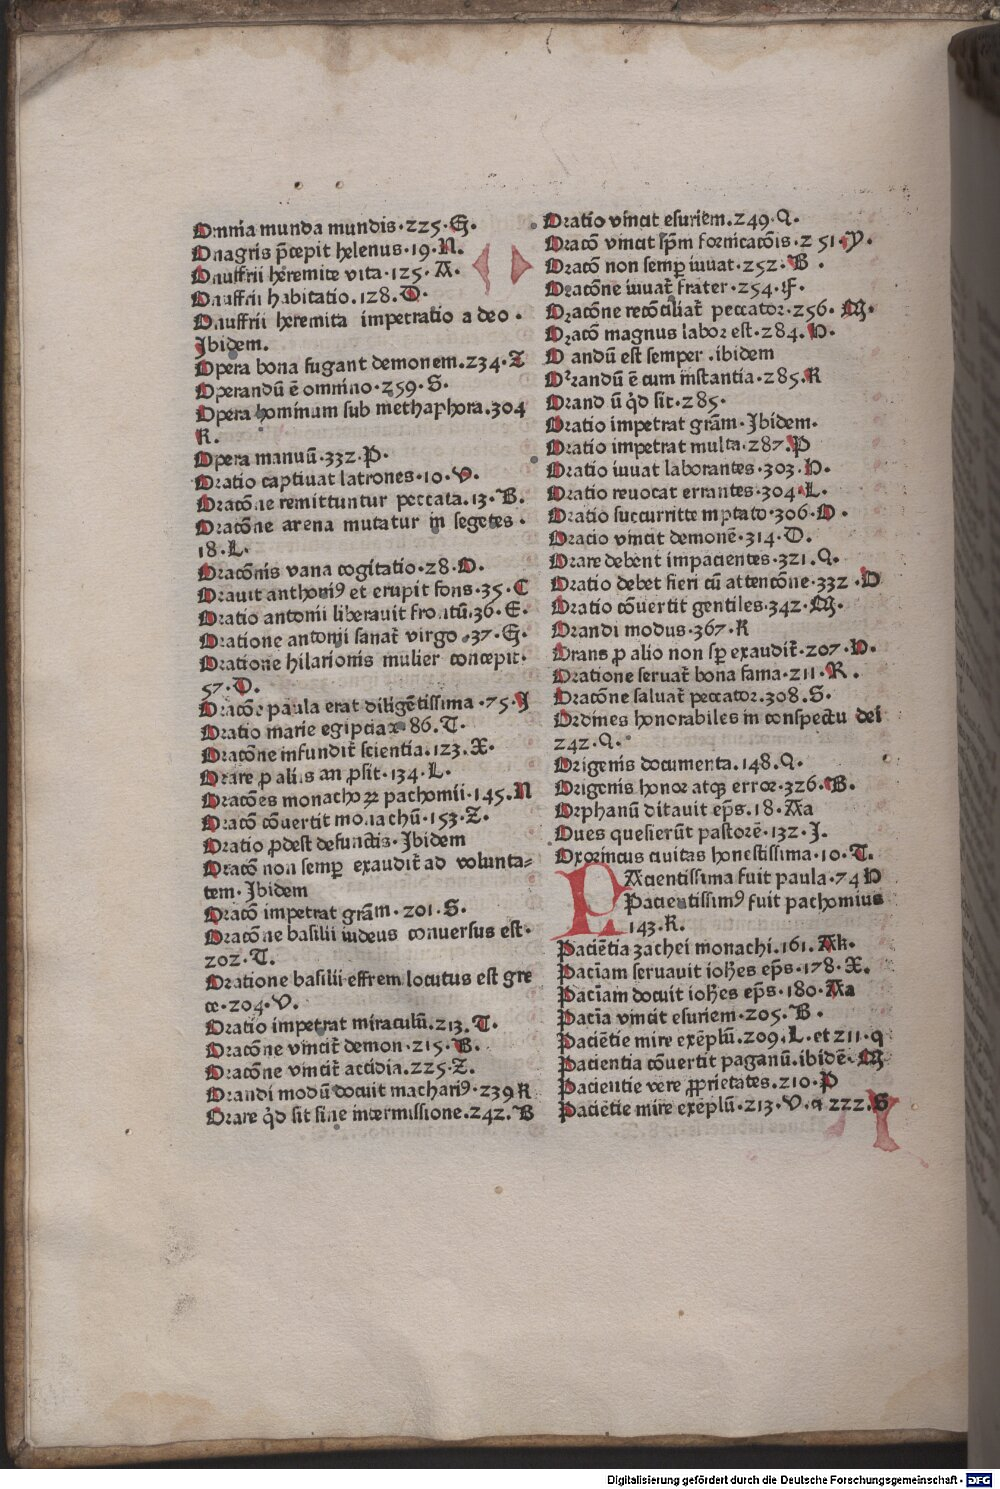 Omnia munda mundis·225·G·
Onagris p̄cepit helenus·19·N.
Onuffrii heremite vita·125·A·
Onuffrii habitatio.128.D·
Onuffrii heremita impetratio a deo·
Ibidem.
Opera bona fugant demonem.234·T
Operandū ē omnino·259·S·
Opera hominum sub methaphora.304
R.
Opera manuū·332·P·
Oratio captiuat latrones·10·V·
Oracōne remittuntur peccata.13·B.
Oracōne arena mutatur in segetes·
18·L·
Oracōnis vana cogitatio·28·O.
Orauit anthoniꝰ et erupit fons·35·C
Oratio antonii liberauit frontū.36·E·
Oratione antonii sanat᷑ virgo·37·G·
Oratione hilarionis mulier concepit·
57·D.
Oracōe paula erat diligētissima·75·I
Oratio marie egiptiaꝝ·86·T·
Oracōne infundit᷑ scientia.123.X·
Orare ꝓ aliis an ꝓsit·134·L·
Oracōes monachoꝝ pachomii·145.N
Oracō cōuertit monachū·153·Z·
Oratio ꝓdest defunctis·Ibidem
Oracō non semꝑ exaudit᷑ ad volunta-
tem·Ibidem
Oracō impetrat grām·201·S·
Oracōne basilii iudeus conuersus est·
202·T.
Oratione basilii effrem locutus est gre
ce·204·V·
Oratio impetrat miraculū.213.T·
Oracōne vincit᷑ demon·215·B.
Oracōne vincit᷑ accidia.225·Z.
Orandi modū docuit machariꝰ·239 R
Orare q̇d sit sine intermissione.242.B
Oratio vincit esuriem.249·Q·
Oracō vincit sp̄m fornicacōis·251·Y·
Oracō non semꝑ iuuat·252·B·
Oracōne iuuat᷑ frater·254·F·
Oracōne recōciliat᷑ peccator·256·M·
Oracō magnus labor est·284·N·
Orandū est semper.ibidem
Orandū ē cum instantia·285.R
Orandū q̇d sit·285·
Oratio impetrat grām·Ibidem·
Oratio impetrat multa.287·P
Oratio iuuat laborantes·303·N·
Oratio reuocat errantes·304·L·
Oratio succurrit temptato·306·O·
Oracio vincit demonē·314·D.
Orare debent impacientes·321.Q·
Oratio debet fieri cū attencōne·332·O
Oratio cōuertit gentiles·342·M·
Orandi modus·367·R
Orans ꝓ alio non sꝑ exaudit᷑·207·N·
Oratione seruat᷑ bona fama·211·R·
Oracōne saluat᷑ peccator.308·S·
Ordines honorabiles in conspectu dei
242·Q·
Origenis documenta.148.Q·
Origenis honor atqꝫ error·326·B·
Orphanū ditauit ep̄s.18·Aa
Oues quesierūt pastorē·132·I.
Oxorincus ciuitas honestissima·10·T.
PAcientissima fuit paula·74 N
Pacientissimꝰ fuit pachomius
143.R·
Paciētia zachei monachi.161.Ak·
Paciam seruauit ioh̄es ep̄s·178·X.
Paciam docuit ioh̄es ep̄s·180·Aa
Pacia vincit esuriem·205·B·
Paciētie mire exēplū.209.L·et 211·q
Pacientia cōuertit paganū.ibidē·M
Pacientie vere ꝓprietates.210·P
Paciētie mire exēplū·213·V·⁊ 222·S
Digitalisierung gefördert durch die Deutsche Forschungsgemeinschaft - DFG